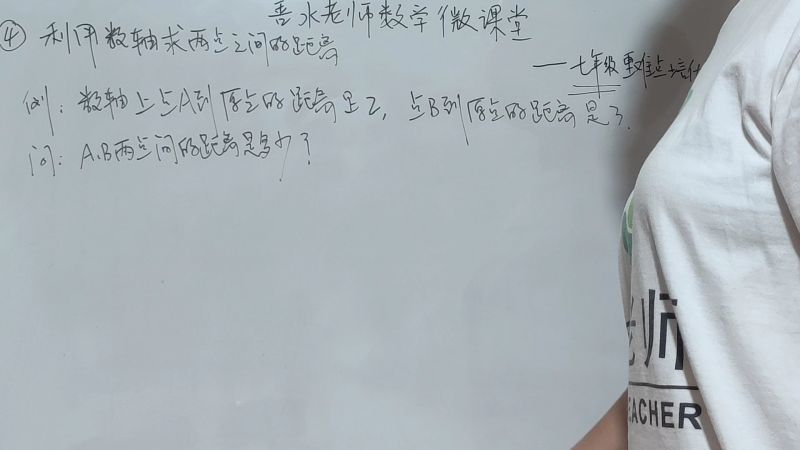 善水老师数学微课堂
④ 利用数轴求两点之间的距离
——七年级重难点培优
例：数轴上点A到原点的距离是2，点B到原点的距离是3.
问：A.B两点间的距离是多少？
老师
TEACHER